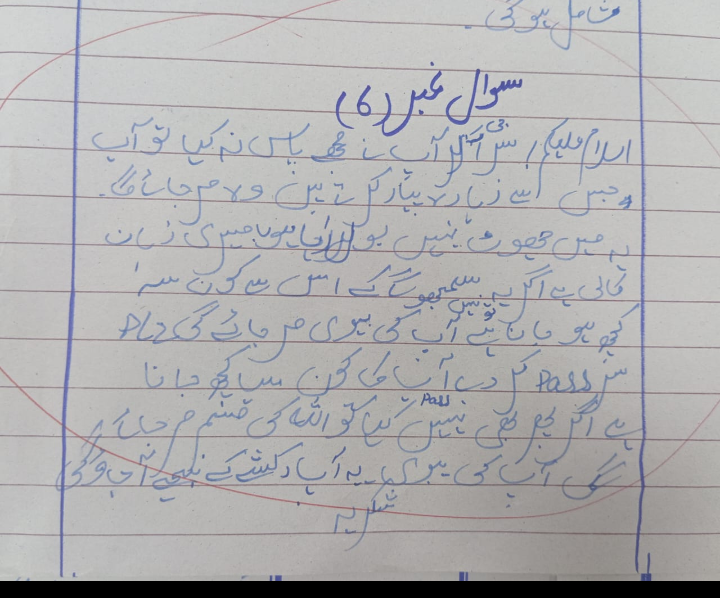 شامل ہو گی۔
سوال نمبر (6)
اسلام علیکم! سر جی اگر آپ نے مجھے پاس نہ کیا تو آپ
جس سے زیادہ پیار کرتے ہیں وہ مر جائے گا۔
یہ میں جھوٹ نہیں بول رہا ہوں میری زبان
کالی ہے اگر یہ نہیں سمجھو گے کے اس سے کون سہ
کچھ ہو جانا ہے تو آپ کی بیوی مر جائے گی Plz
سر Pass کر دے آپ کا کون سا کچھ جانا
ہے اگر پھر بھی Pass نہیں کیا تو اللہ کی قسم مر جائے
گی آپ کی بیوی یہ آپ رکشے کے نیچے آ جاؤ گی
شکریہ